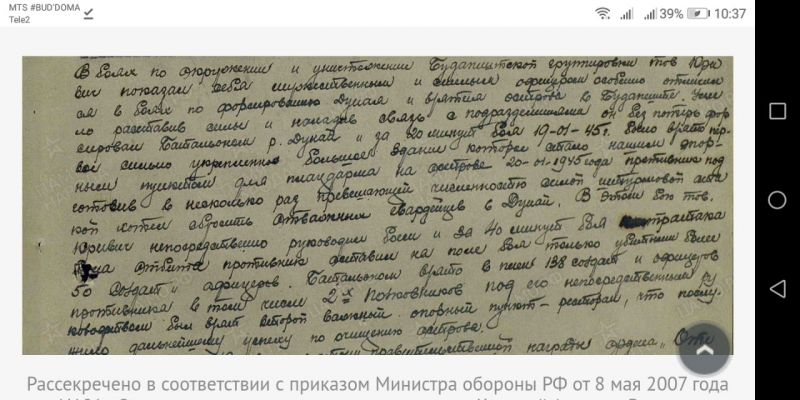 MTS #BUD'DOMA
Tele2
39% 10:37
В боях по окружении и уничтожении Будапештской группировки тов Юре
вич показал себя мужественным и смелым офицером особенно отличил
ся в боях по форсированию Дуная и взятия острова в Будапеште. Уме
ло расставив силы и наладив связь с подразделениями он без потерь фор
сировал Батальоном р. Дунай и за 20 минут боя 19-01-45г. было взято пер-
вое сильно укрепленное большое здание которое стало нашим опор-
ным пунктом для плацдарма на острове 20-01-1945 года противник под
готовив в несколько раз превышающей численностью своей штурмовой
кой хотел сбросить отважных гвардейцев в Дунай. В этом бою тов.
Юревич непосредственно руководил боем и за 40 минут боя контратака
была отбита противник оставил на поле боя только убитыми более
50 солдат и офицеров. Батальоном взято в плен 138 солдат и офицеров
противника в том числе 2х полковников под его непосредственным ру
ководством был взят второй важный опорный пункт-ресторан, что послу-
жило дальнейшему успеху по очищению острова.
правительственной награды ордена „Оте
Рассекречено в соответствии с приказом Министра обороны РФ от 8 мая 2007 года